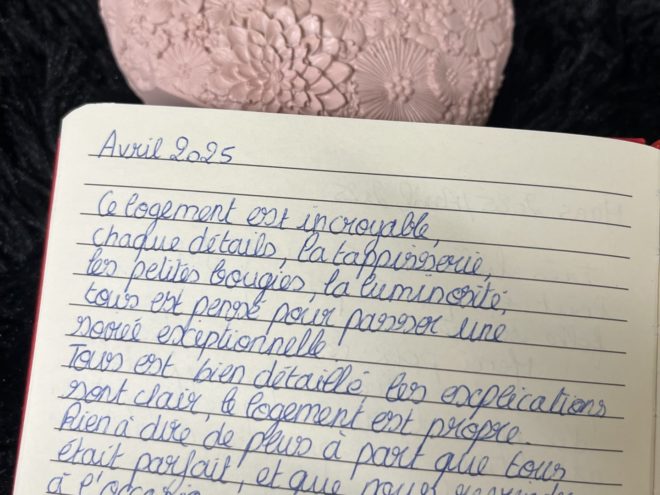 Avril 2025
Ce logement est incroyable,
chaque détails, la tappisserie,
les petites bougies, la luminosité,
tous est pensé pour passer une
soirée exceptionnelle.
Tous est bien détaillé, les explications
sont clair, le logement est propre.
Rien à dire de plus à part que tous
était parfait, et que nous
à l'occasio